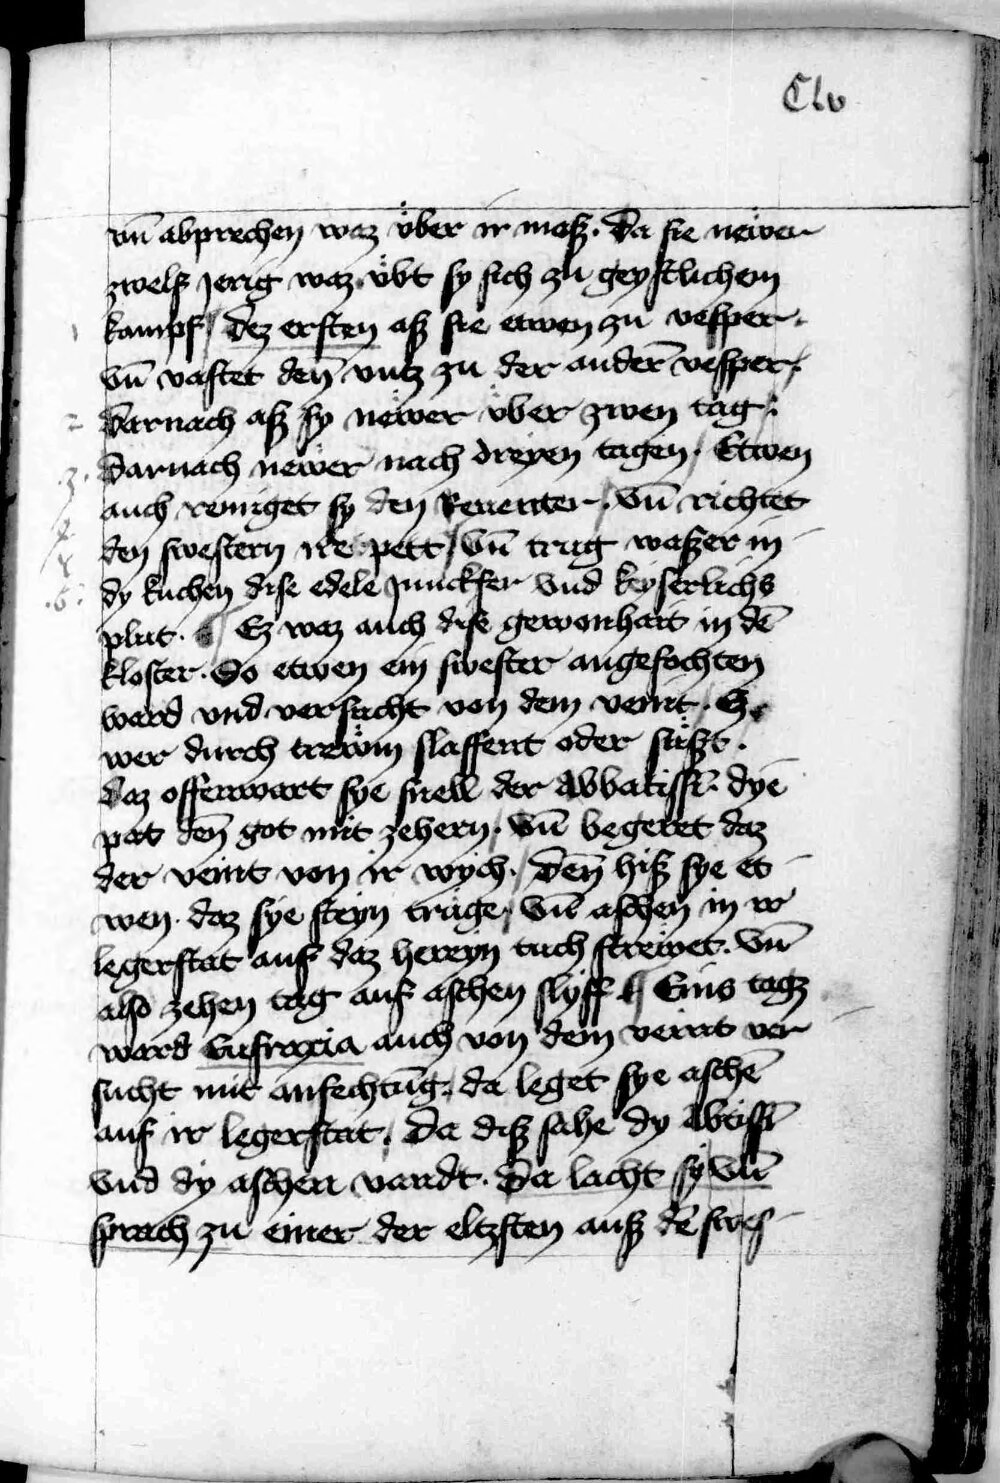 Clv
vn̄ abprechen waz v̈ber ir masz. Da sie newer
zwelf jerig waz v̈bt sy sich zu geystlichem
1 kampf / dez ersten asz sie etwen zu vesper.
vn̄ vastet den̄ vntz zu der ander̄ vesper /
2 Darnach asz sy newer v̈ber zwen tag.
3. Darnach newer nach dreyen tagen / Etwen
auch reiniget sy den Reuenter / vn̄ richtet
4 den swestern ire pett / vn̄ trug waszer in
.5. dy kuchen dise edele Junckfer vnd keyserlichs
plut. Ez waz auch dise gewonhait in dē
kloster. So etwen ein swester angefochten
ward vnd versucht von dem veint / Ez
wer durch trewm slaffent oder süszt.
Daz offenwart sye snell der Abbatissī. dye
pat den̄ got mit zehern / vn̄ begeret daz
der veint von ir wych. / Den̄ hisz sye et
wen. daz sye steyn truge / vn̄ aschen in ir
legerstat auf daz herreyn tuch strewet. vn̄
also zehen tag auf aschen slyff / Eins tagz
ward Eufraxia auch von dem veint ver
sucht mit anfechtūg / da leget sye aschē
auf ir legerstat / Da disz sahe dy Abtissī
vnd dy aschen vandt. Da lacht sy vn̄
sprach zu einer der eltzsten ausz dē swes